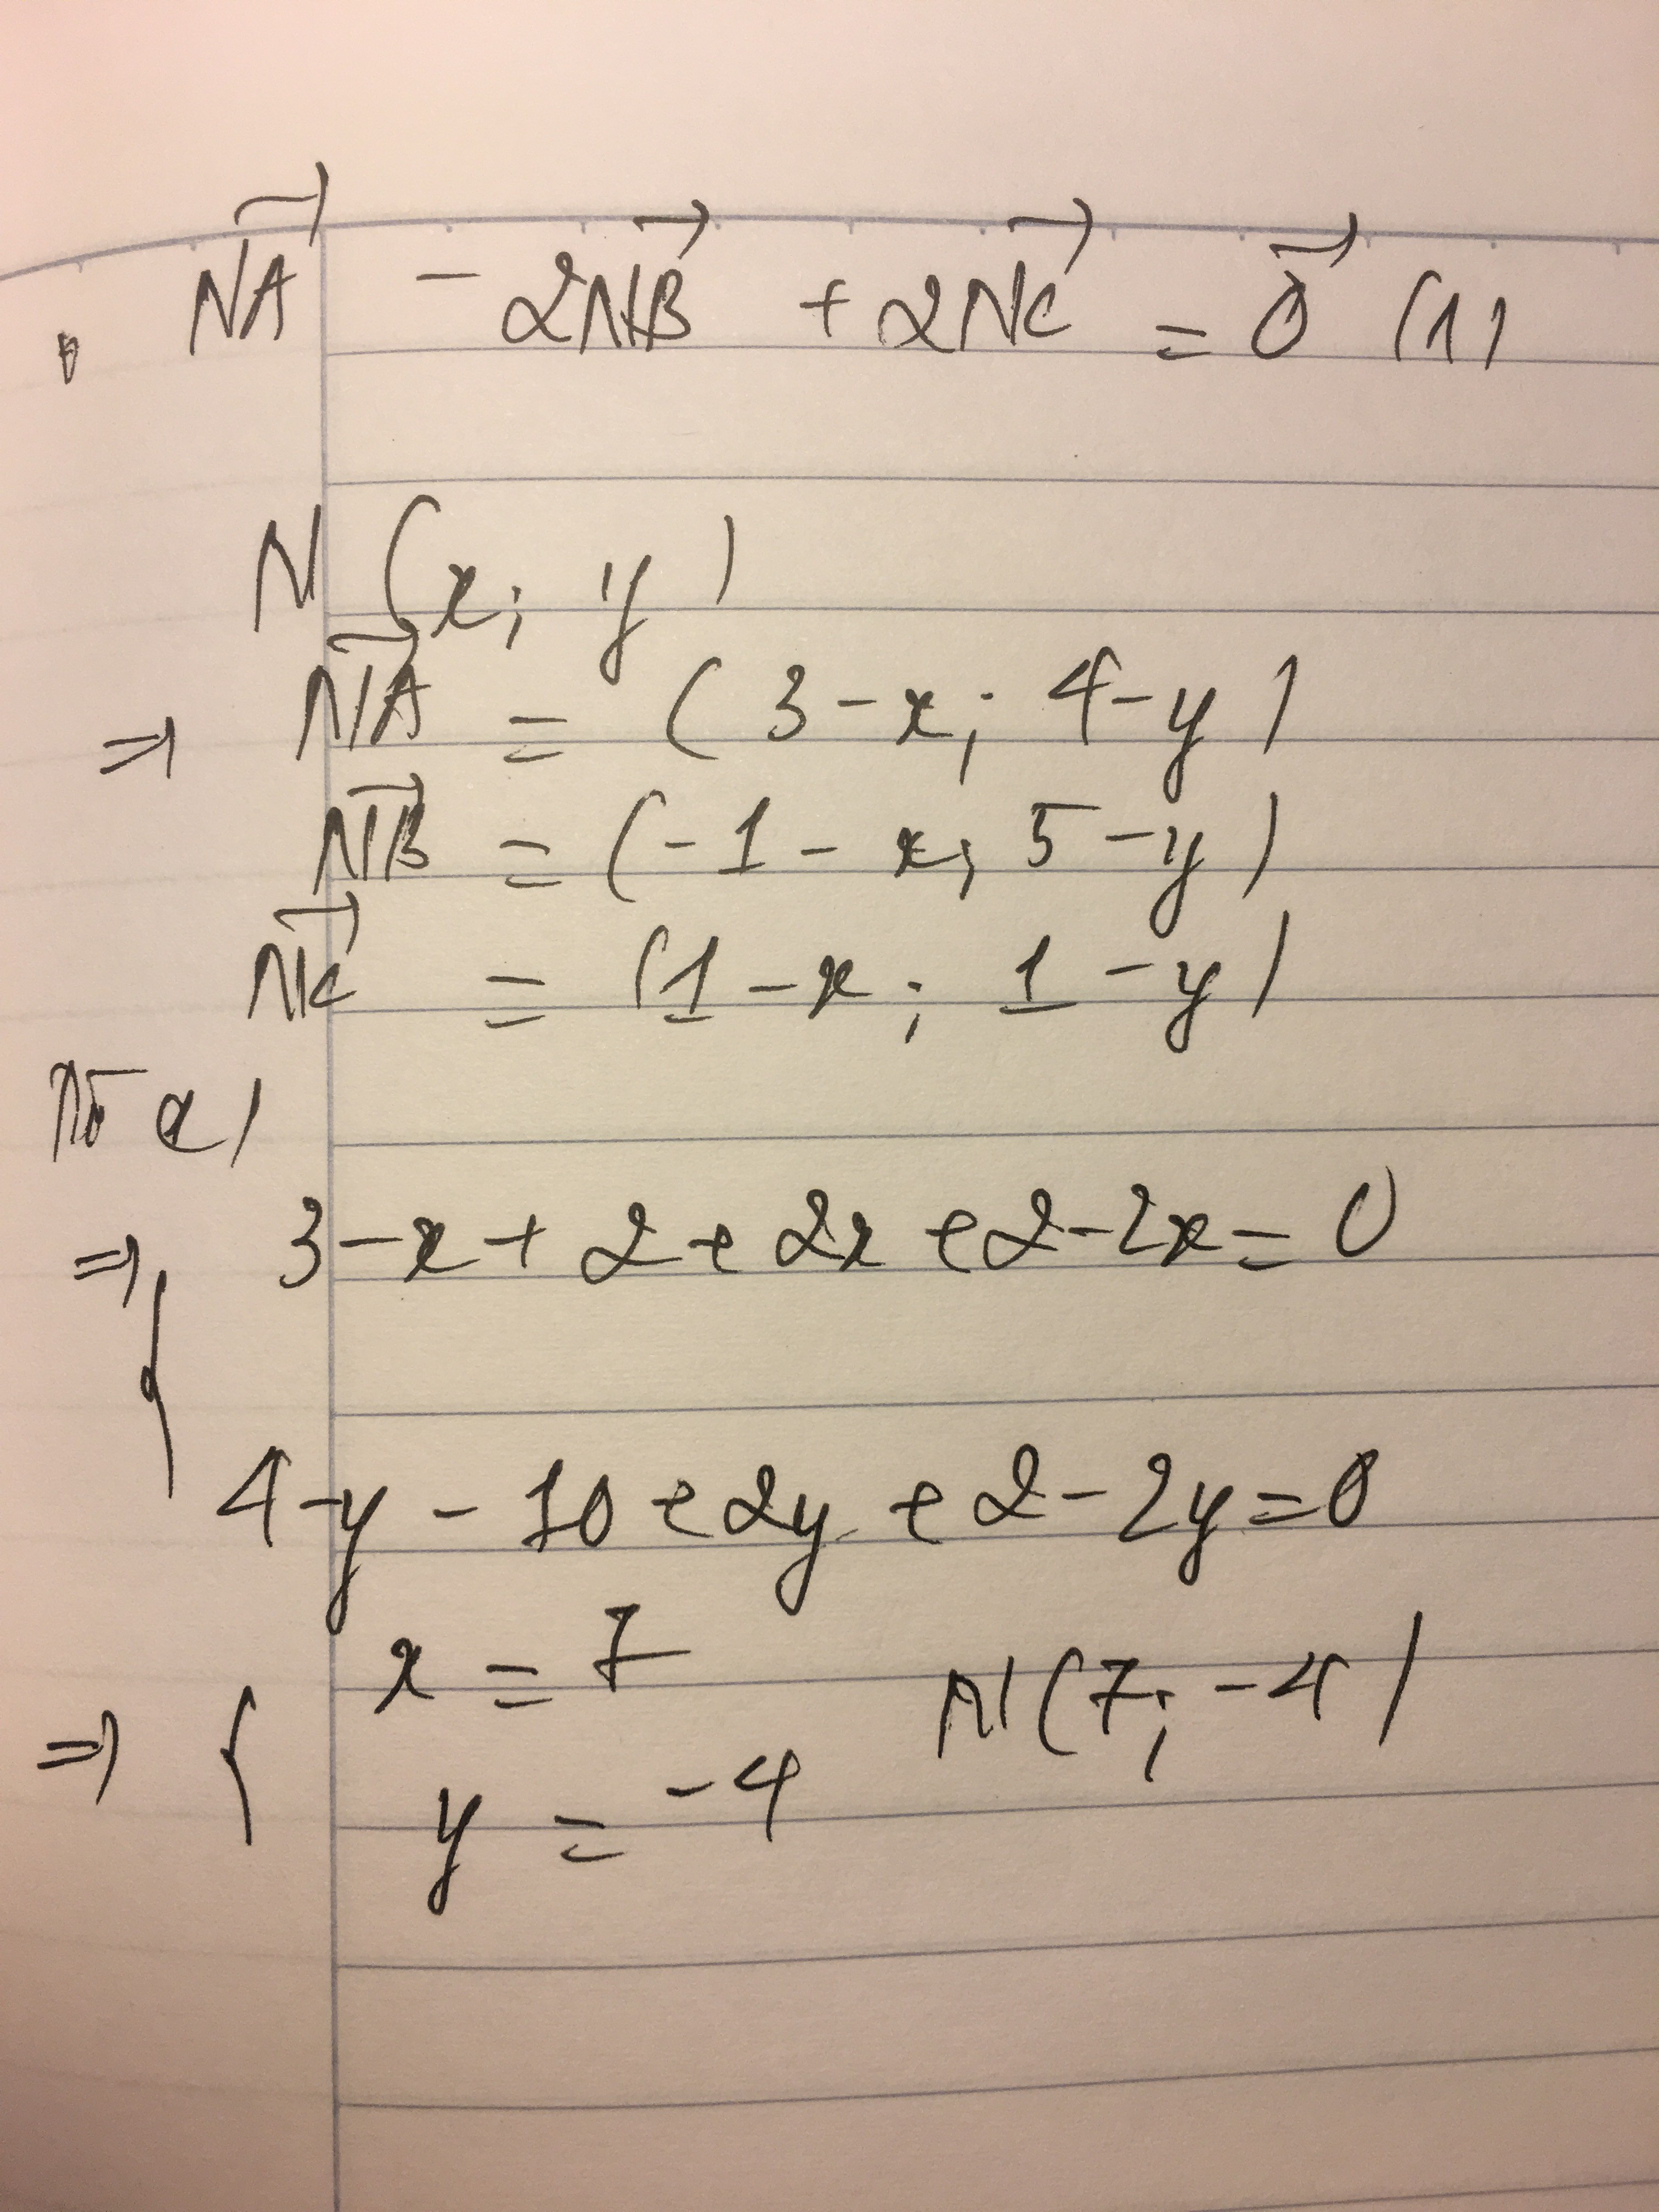 NA⃗ - 2NB⃗ + 2NC⃗ = 0⃗ (1)
N (x; y)
⇒ NA⃗ = (3-x; 4-y)
NB⃗ = (-1-x; 5-y)
NC⃗ = (1-x; 1-y)
⇒ { 3-x+2+2x+2-2x=0
4-y-10+2y+2-2y=0
⇒ { x = 7 N(7; -4)
y = -4